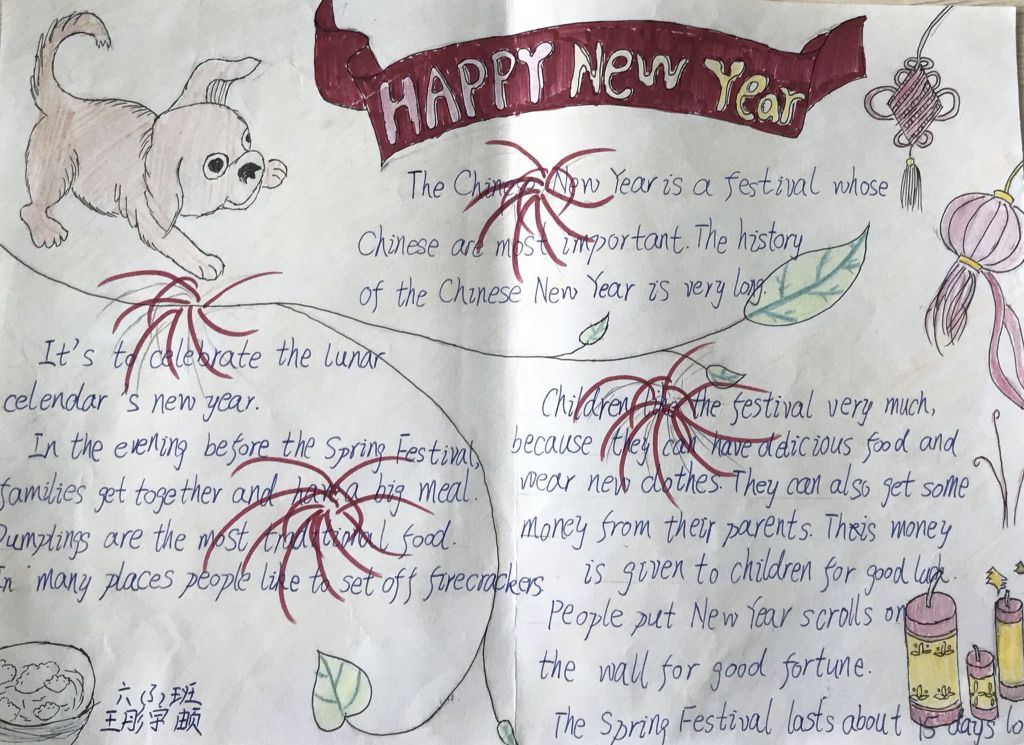 HAPPY New Year
The Chinese New Year is a festival whose
Chinese are most important. The history
of the Chinese New Year is very long.
It's to celebrate the lunar
celendar 's new year.
In the evening before the Spring Festival,
families get together and have a big meal.
Dumplings are the most traditional food.
In many places people like to set off firecrackers.
六(3)班
Children like the festival very much,
because they can have delicious food and
wear new clothes. They can also get some
money from their parents. This money
is given to children for good luck.
People put New Year scrolls on
the wall for good fortune.
The Spring Festival lasts about 15 days